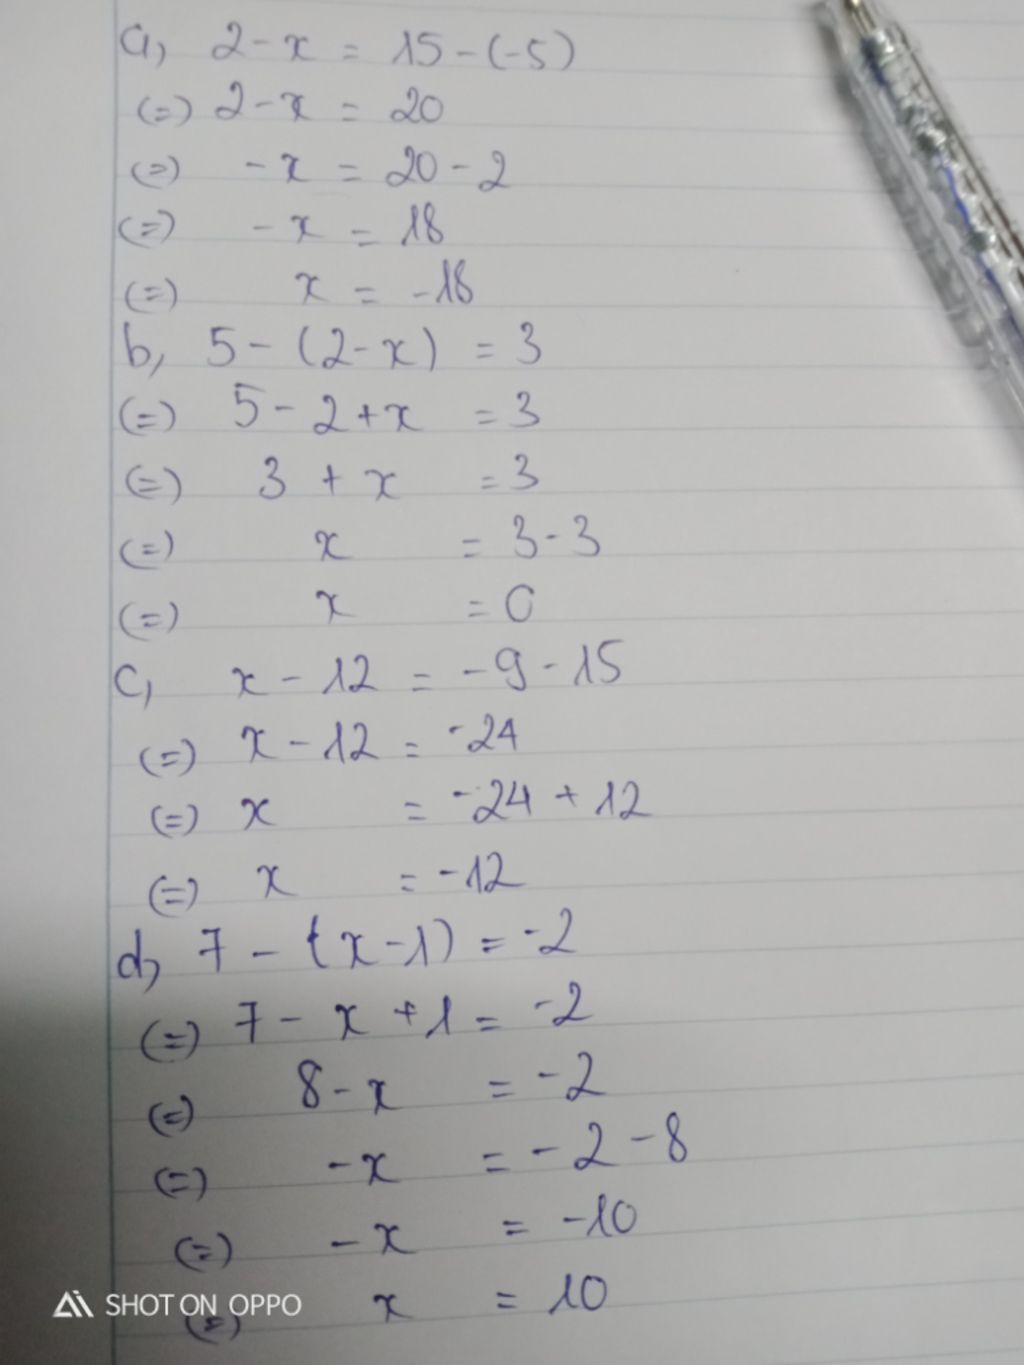 a, 2 - x = 15 - (-5)
(=) 2 - x = 20
(=) - x = 20 - 2
(=) - x = 18
(=) x = -18
b, 5 - (2 - x) = 3
(=) 5 - 2 + x = 3
(=) 3 + x = 3
(=) x = 3 - 3
(=) x = 0
c, x - 12 = -9 - 15
(=) x - 12 = -24
(=) x = -24 + 12
(=) x = -12
d, 7 - (x - 1) = -2
(=) 7 - x + 1 = -2
(=) 8 - x = -2
(=) - x = -2 - 8
(=) - x = -10
(=) x = 10
SHOT ON OPPO